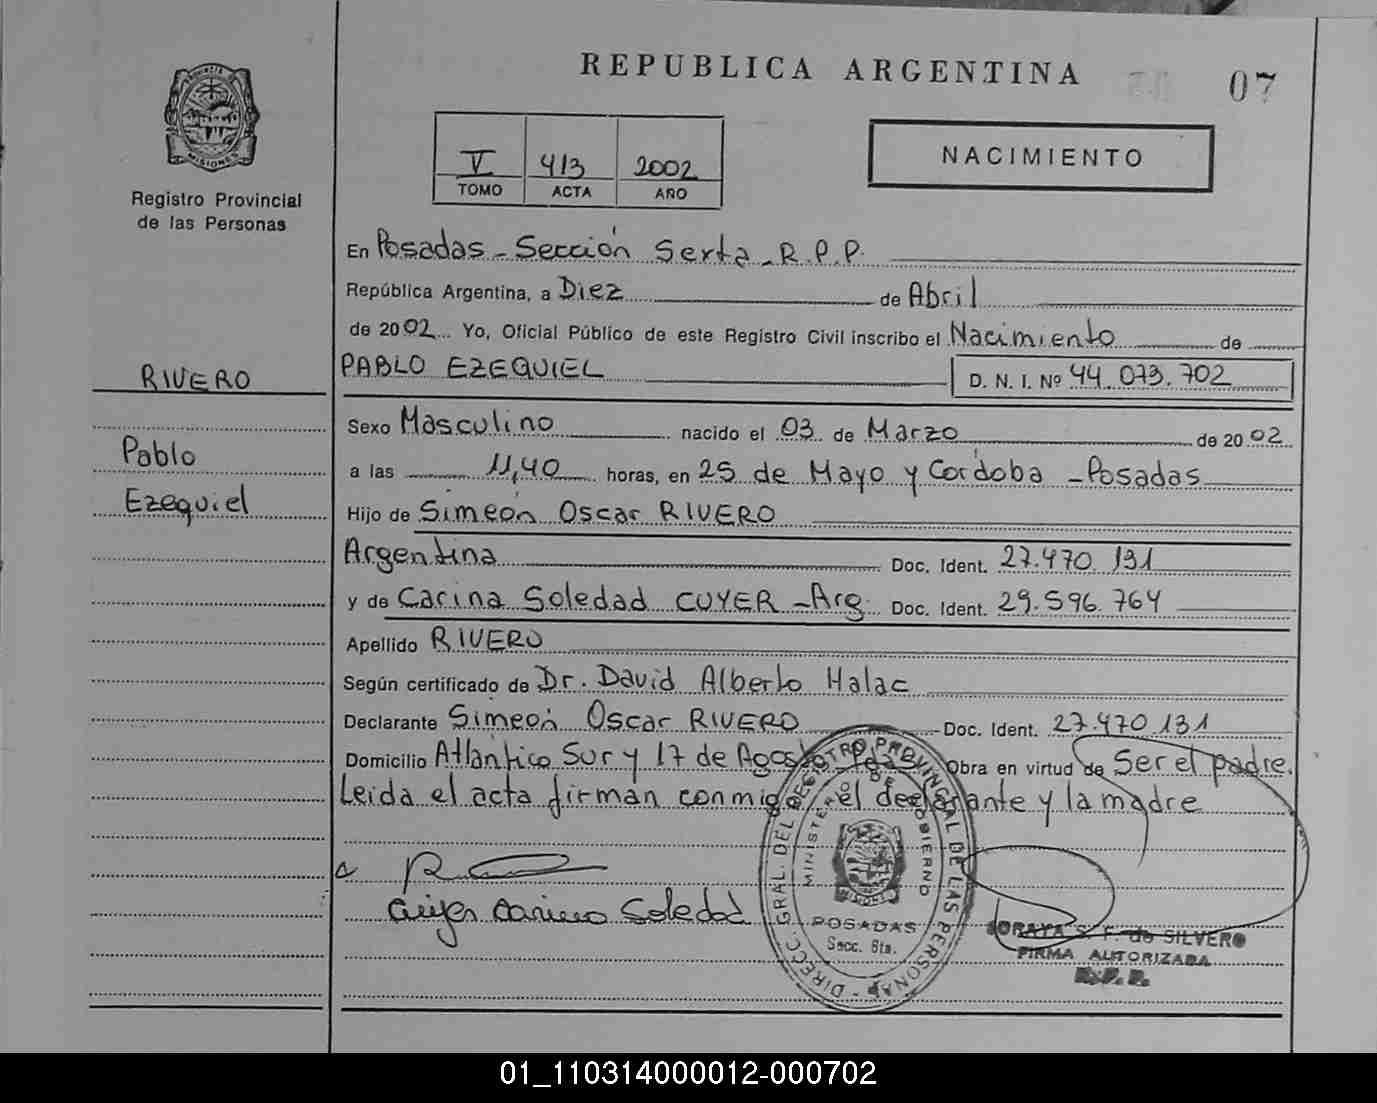 REPUBLICA ARGENTINA
07
MISIONES
Registro Provincial
de las Personas
V 413 2002
TOMO ACTA AÑO
NACIMIENTO
En Posadas - Sección Sexta - R.P.P.
República Argentina, a Diez de Abril
de 2002 Yo, Oficial Público de este Registro Civil inscribo el Nacimiento de
PABLO EZEQUIEL D. N. I. Nº 44.073.702
RIVERO
Pablo
Ezequiel
Sexo Masculino nacido el 03 de Marzo de 2002
a las 11,40 horas, en 25 de Mayo y Cordoba - Posadas
Hijo de Simeón Oscar RIVERO
Argentina Doc. Ident. 27.470.131
y de Carina Soledad CUYER - Arg. Doc. Ident. 29.596.764
Apellido RIVERO
Según certificado de Dr. David Alberto Halac
Declarante Simeón Oscar RIVERO Doc. Ident. 27.470.131
Domicilio Atlántico Sur y 17 de Agosto Obra en virtud de Ser el padre.
Leida el acta firman conmigo el declarante y la madre
Cuyer Carina Soledad
DIRECC. GRAL. DEL REGISTRO PROVINCIAL DE LAS PERSONAS
MINISTERIO DE GOBIERNO
MISIONES
POSADAS
Secc. 6ta.
SORAYA S. F. de SILVERO
FIRMA AUTORIZADA
R.P.P.
01_110314000012-000702